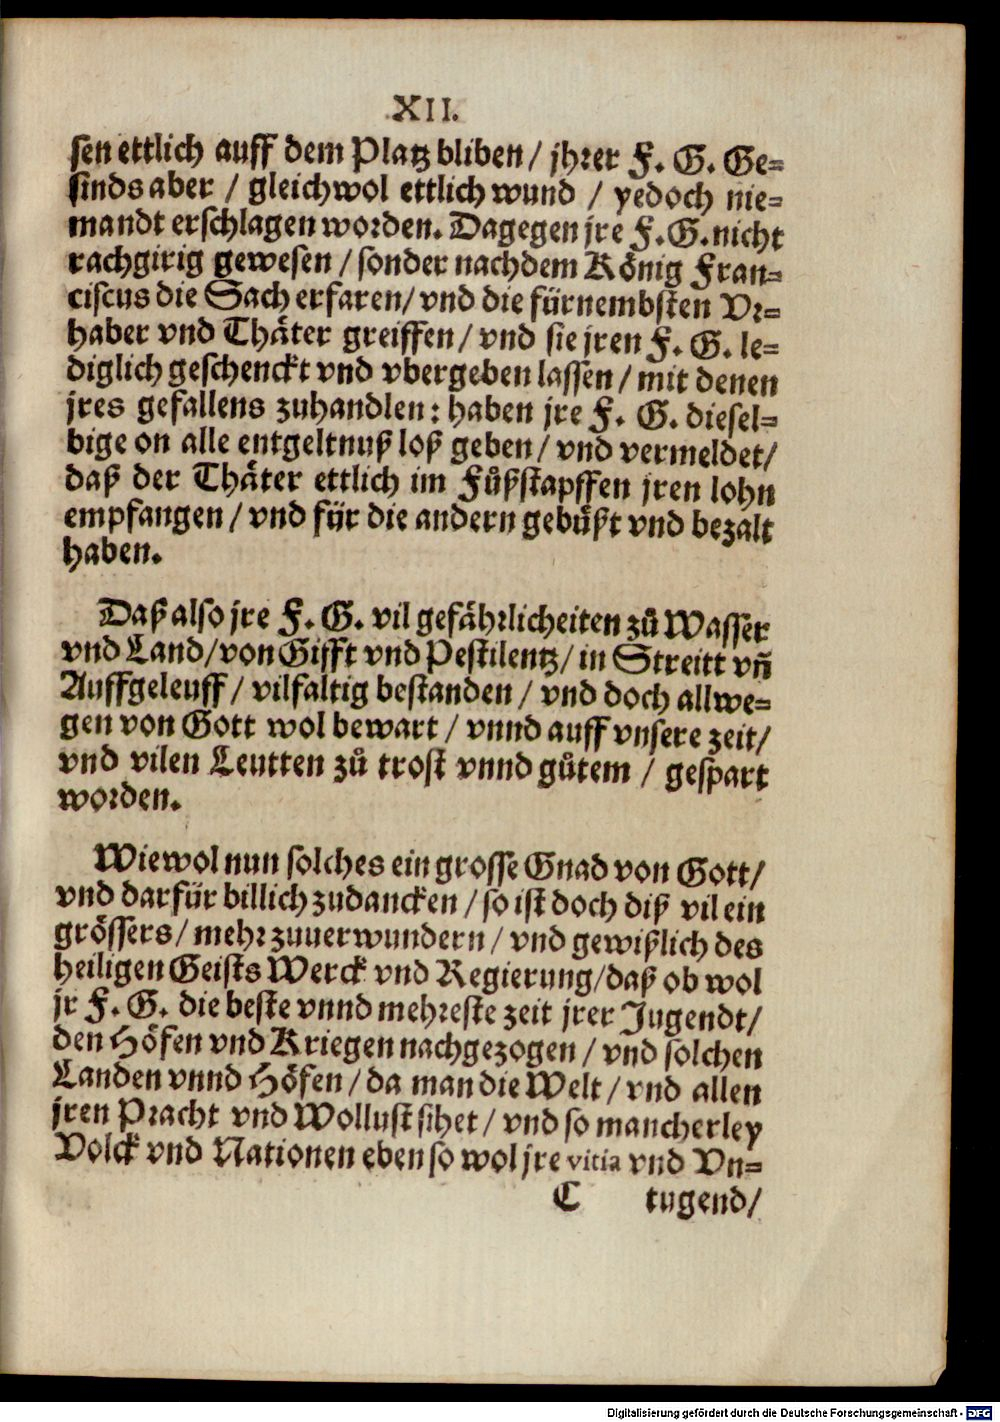 XII.
sen ettlich auff dem Platz bliben / jhrer F. G. Ge-
sinds aber / gleichwol ettlich wund / yedoch nie-
mandt erschlagen worden. Dagegen jre F. G. nicht
rachgirig gewesen / sonder nachdem König Fran-
ciscus die Sach erfaren / vnd die fürnembsten Vr-
haber vnd Thäter greiffen / vnd sie jren F. G. le-
diglich geschenckt vnd vbergeben lassen / mit denen
jres gefallens zuhandlen: haben jre F. G. diesel-
bige on alle entgeltnuß loß geben / vnd vermeldet /
daß der Thäter ettlich im Fůßstapffen jren lohn
empfangen / vnd für die andern gebüßt vnd bezalt
haben.
Daß also jre F. G. vil gefährlicheiten zů Wasser
vnd Land / von Gifft vnd Pestilentz / in Streitt vñ
Auffgeleuff / vilfaltig bestanden / vnd doch allwe-
gen von Gott wol bewart / vnnd auff vnsere zeit /
vnd vilen Leutten zů trost vnnd gůtem / gespart
worden.
Wiewol nun solches ein grosse Gnad von Gott /
vnd darfür billich zudancken / so ist doch diß vil ein
grössers / mehr zuuerwundern / vnd gewißlich des
heiligen Geists Werck vnd Regierung / daß ob wol
jr F. G. die beste vnnd mehreste zeit jrer Jugendt /
den Höfen vnd Kriegen nachgezogen / vnd solchen
Landen vnnd Höfen / da man die Welt / vnd allen
jren Pracht vnd Wollust sihet / vnd so mancherley
Volck vnd Nationen eben so wol jre vitia vnd Vn-
C tugend /
Digitalisierung gefördert durch die Deutsche Forschungsgemeinschaft - DFG